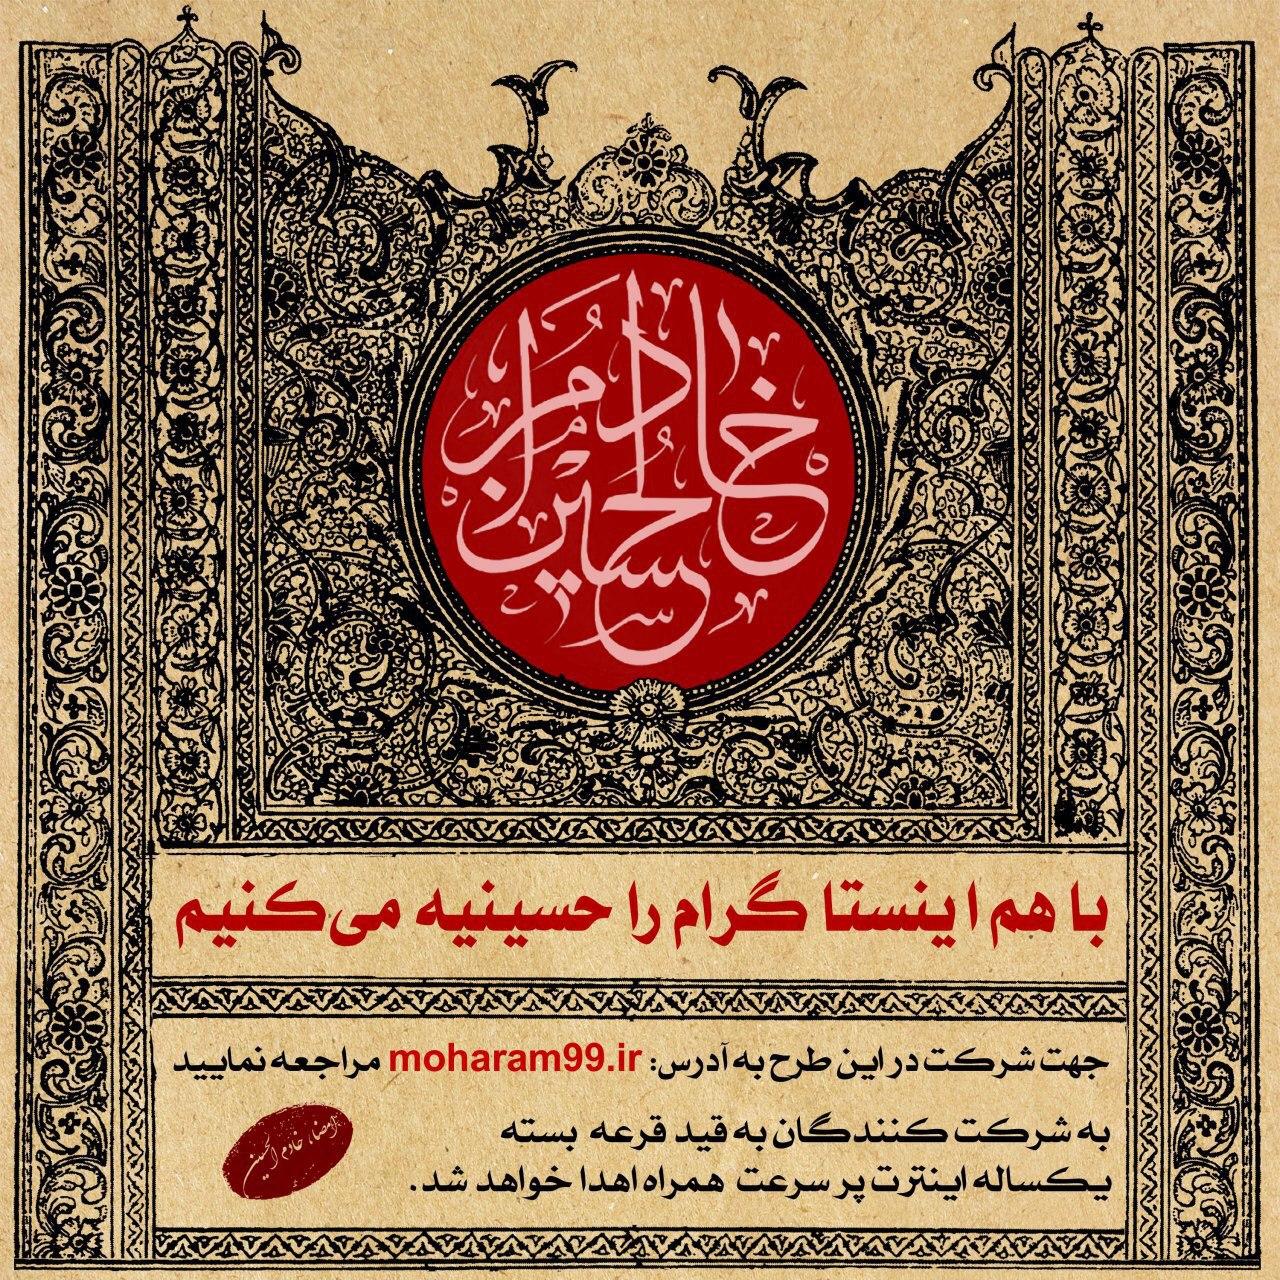 خادم الحسینم
با هم اینستاگرام را حسینیه می‌کنیم
جهت شرکت در این طرح به آدرس: moharam99.ir مراجعه نمایید
به شرکت کنندگان به قید قرعه بسته
یکساله اینترت پر سرعت همراه اهدا خواهد شد.
خادم الحسین